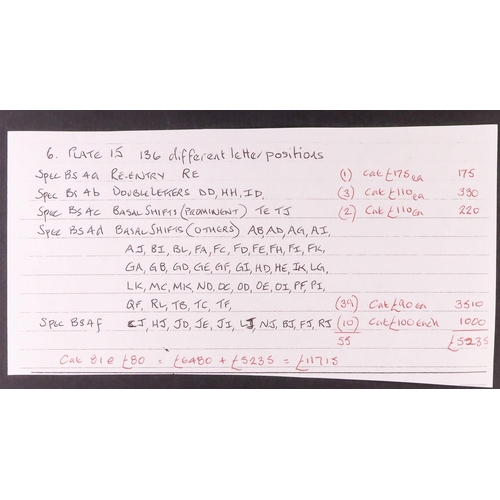 6. PLATE 15 136 different letter positions
SPEC BS 4a RE-ENTRY RE (1) Cat £175 ea 175
SPEC BS 4b DOUBLE LETTERS DD, HH, ID, (3) Cat £110 ea 330
SPEC BS 4c BASAL SHIFTS (PROMINENT) TE TJ (2) Cat £110 ea 220
SPEC BS 4d BASAL SHIFTS (OTHERS) AB, AD, AG, AI,
AJ, BI, BL, FA, FC, FD, FE, FH, FI, FK,
GA, GB, GD, GE, GF, GI, HD, HE, IK, LG,
LK, MC, MK, ND, OC, OD, OE, OI, PF, PI,
QF, RL, TB, TC, TF, (39) Cat £90 ea 3510
SPEC BS 4f CJ, HJ, JD, JE, JI, LJ, NJ, BJ, FJ, RJ (10) Cat £100 each 1000
55 £5235
Cat 81 @ £80 = £6480 + £5235 = £11715